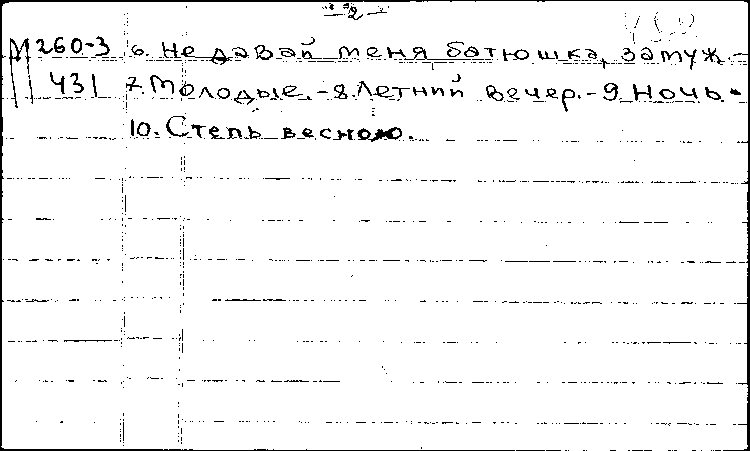 - 2 -
М 260-3 6. Не давай меня батюшка, замуж.-
431 7. Молодые.-8. Летний вечер.-9. Ночь.-
10. Степь весною.